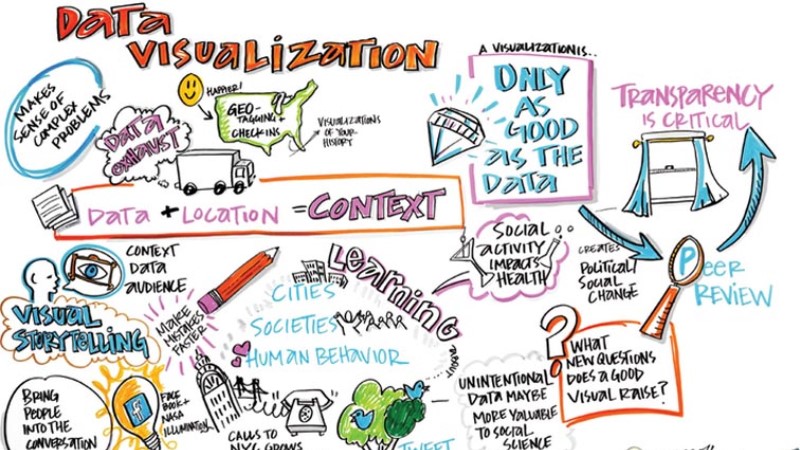 DATA
VISUALIZATION
MAKES
SENSE OF
COMPLEX
PROBLEMS
DATA
EXHAUST
HAPPIER!
GEO-
TAGGING +
CHECKINS
VISUALIZATIONS
OF YOUR
HISTORY
A VISUALIZATION IS...
ONLY
AS
GOOD
AS THE
DATA
TRANSPARENCY
IS CRITICAL
DATA + LOCATION = CONTEXT
CONTEXT
DATA
AUDIENCE
VISUAL
STORYTELLING
MAKE
MISTAKES
FASTER
LEARNING
ABOUT
CITIES
SOCIETIES
HUMAN BEHAVIOR
SOCIAL
ACTIVITY
IMPACTS
HEALTH
CREATES
POLITICAL/
SOCIAL
CHANGE
PEER
REVIEW
WHAT
NEW QUESTIONS
DOES A GOOD
VISUAL RAISE?
?
BRING
PEOPLE
INTO THE
CONVERSATION
f
FACE
BOOK +
NASA
ILLUMINATION
CALLS TO
NYC GROWS
TWEET
UNINTENTIONAL
DATA MAYBE
MORE VALUABLE
TO SOCIAL
SCIENCE